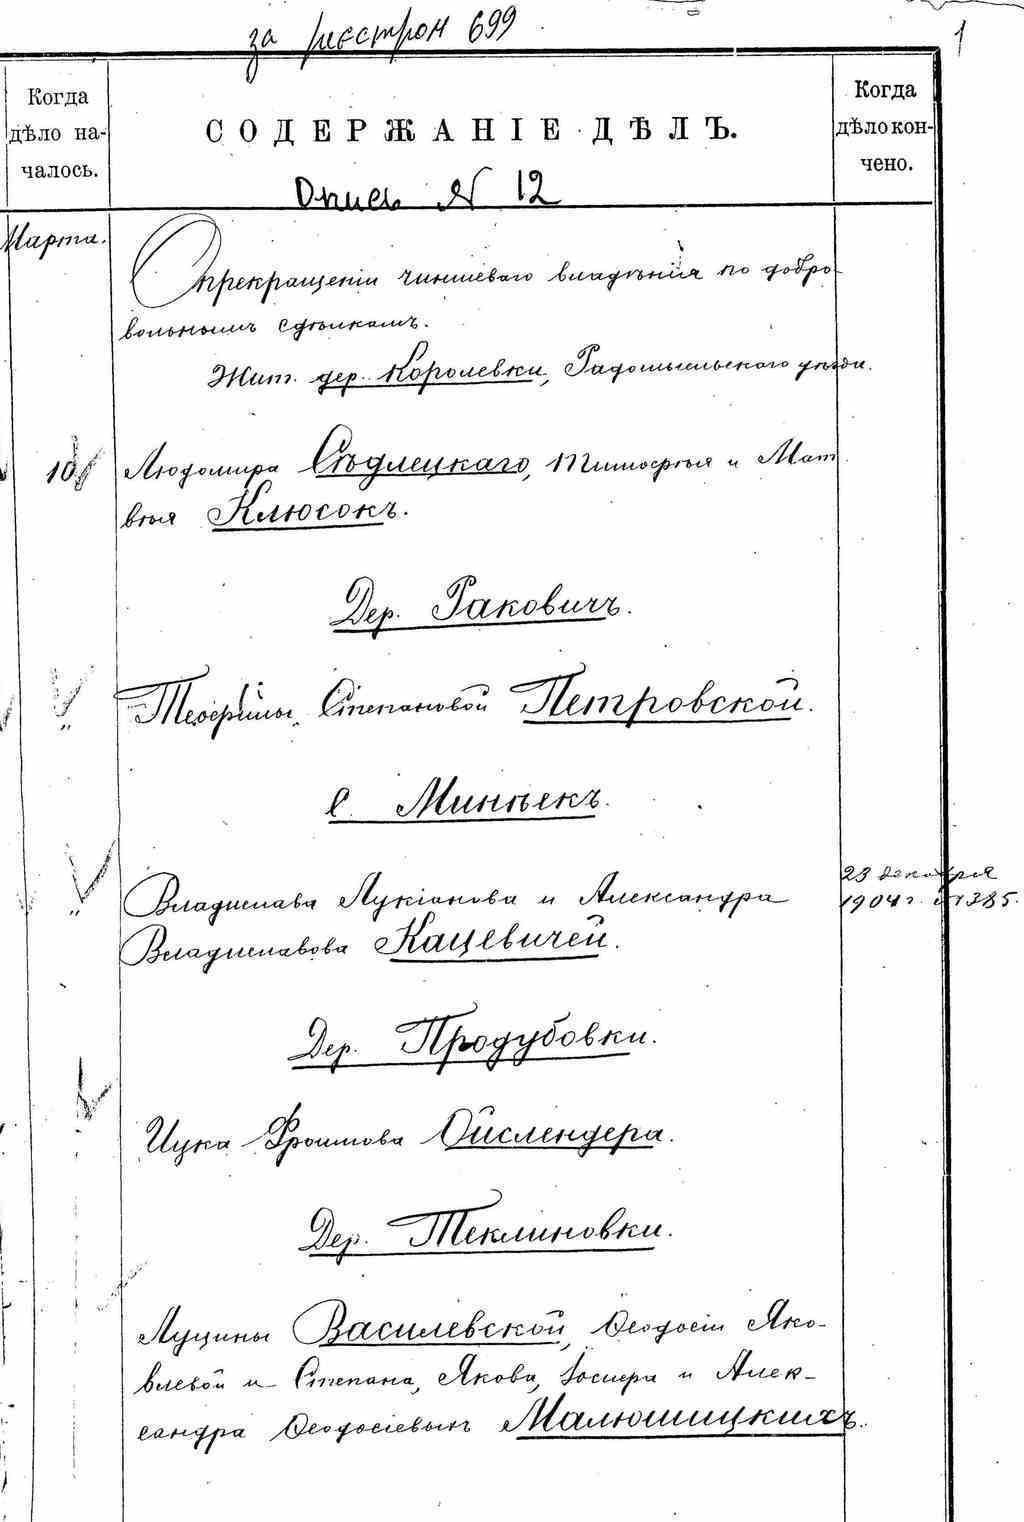 за реєстром 699
1
Когда
дѣло на-
чалось.
СОДЕРЖАНІЕ ДѢЛЪ.
Когда
дѣло кон-
чено.
Опись № 12
Марта.
О прекращеніи чиншеваго владѣнія по добро-
вольнымъ сдѣлкамъ.
Жит. дер. Королевки, Радомысльскаго уѣзда.
10
Людомира Сѣдлецкаго, Тимофѣя и Мат
вѣя Клюсокъ.
Дер. Раковичъ.
" Теофилы Степановой Петровской.
С. Минѣекъ.
" Владислава Лукіанова и Александра
Владиславова Кацевичей.
23 декабря
1904 г. № 1385.
Дер. Продубовки.
Ицка Фроимова Ойслендера.
Дер. Теклиновки.
Луцины Василевской, Ѳеодосіи Яко-
влевой и Степана, Якова, Іосифа и Алек-
сандра Ѳеодосіевыхъ Малюшицкихъ.